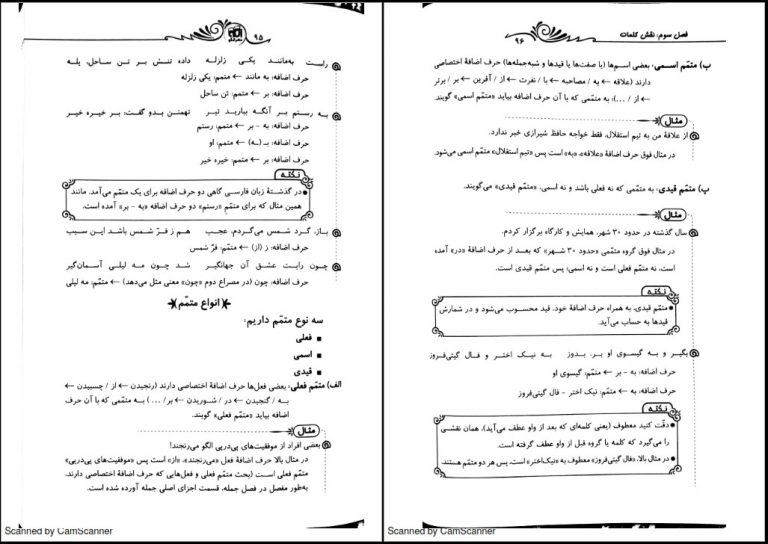 ۹۵
راست به‌مانند یکی زلزله داده تنش بر تن ساحل، یله
حرف اضافه: به مانند ← متمم: یکی زلزله
حرف اضافه: بر ← متمم: تن ساحل
به رستم بر آنگه ببارید تیر تهمتن بدو گفت: بر خیره خیر
حرف اضافه: به - بر ← متمم: رستم
حرف اضافه: بـ (ـه) ← متمم: او
حرف اضافه: بر ← متمم: خیره خیر
نکته
در گذشتهٔ زبان فارسی گاهی دو حرف اضافه برای یک متمّم می‌آمد. مانند
همین مثال که برای متمّم «رستم» دو حرف اضافه «به - بر» آمده است.
باز، گرد شمس می‌گردم، عجب هم ز فرّ شمس باشد این سبب
حرف اضافه: ز (از) ← متمّم: فرّ شمس
چون رایت عشق آن جهانگیر شد چون مه لیلی آسمان‌گیر
حرف اضافه: چون (در مصراع دوم «چون» معنی مثل می‌دهد) ← متمّم: مه لیلی
انواع متمّم
سه نوع متمّم داریم:
▪ فعلی
▪ اسمی
▪ قیدی
الف) متمّم فعلی: بعضی فعل‌ها حرف اضافهٔ اختصاصی دارند (رنجیدن ← از / چسبیدن ←
به / گنجیدن ← در / شوریدن ← بر/ ... ) به متمّمی که با آن حرف
اضافه بیاید «متمّم فعلی» گویند.
مثال
بعضی افراد از موفقیت‌های پی‌درپی الگو می‌رنجند!
در مثال بالا حرف اضافهٔ فعل «می‌رنجند»، «از» است پس «موفقیت‌های پی‌درپی»
متمّم فعلی است (بحث متمّم فعلی و فعل‌هایی که حرف اضافهٔ اختصاصی دارند،
به‌طور مفصل در فصل جمله، قسمت اجزای اصلی جمله آورده شده است.
Scanned by CamScanner
فصل سوم: نقش کلمات
۹۶
ب) متمّم اسمی: بعضی اسم‌ها (با صفت‌ها یا قیدها و شبه‌جمله‌ها) حرف اضافهٔ اختصاصی
دارند (علاقه ← به / مصاحبه ← با / نفرت ← از / آفرین ← بر / برتر
← از / ...): به متمّمی که با آن حرف اضافه بیاید «متمّم اسمی» گویند.
مثال
از علاقهٔ من به تیم استقلال، فقط خواجه حافظ شیرازی خبر ندارد.
در مثال فوق حرف اضافهٔ «علاقه»، «به» است پس «تیم استقلال» متمّم اسمی می‌شود.
پ) متمّم قیدی: به متمّمی که نه فعلی باشد و نه اسمی، «متمّم قیدی» می‌گویند.
مثال
سال گذشته در حدود ۳۰ شهر، همایش و کارگاه برگزار کردم.
در مثال فوق گروه متمّمی «حدود ۳۰ شهر» که بعد از حرف اضافهٔ «در» آمده
است، نه متمّم فعلی است و نه اسمی؛ پس متمّم قیدی است.
نکته
متمّم قیدی، به همراه حرف اضافهٔ خود، قید محسوب می‌شود و در شمارش
قیدها به حساب می‌آید.
بگیر و به گیسوی او بر، بدوز به نیک اختر و فال گیتی‌فروز
حرف اضافه: به - بر ← متمّم: گیسوی او
حرف اضافه: به ← متمّم: نیک اختر - فال گیتی‌فروز
نکته
دقّت کنید معطوف (یعنی کلمه‌ای که بعد از واو عطف می‌آید)، همان نقشی
را می‌گیرد که کلمه یا گروه قبل از واو عطف گرفته است.
در مثال بالا، «فال گیتی‌فروز» معطوف به «نیک‌اختر» است، پس هر دو متمّم هستند.
Scanned by CamScanner